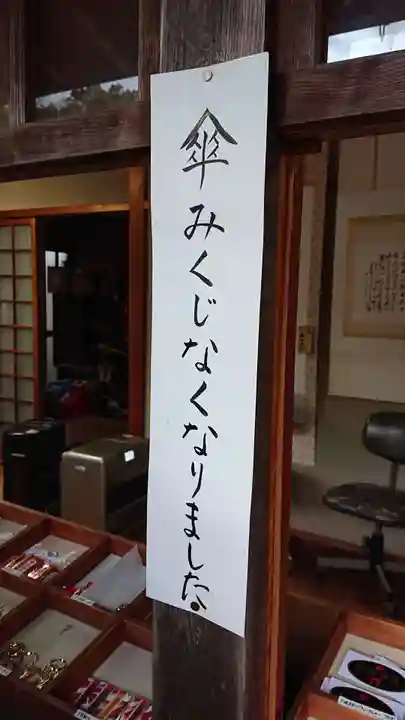 傘みくじなくなりました。